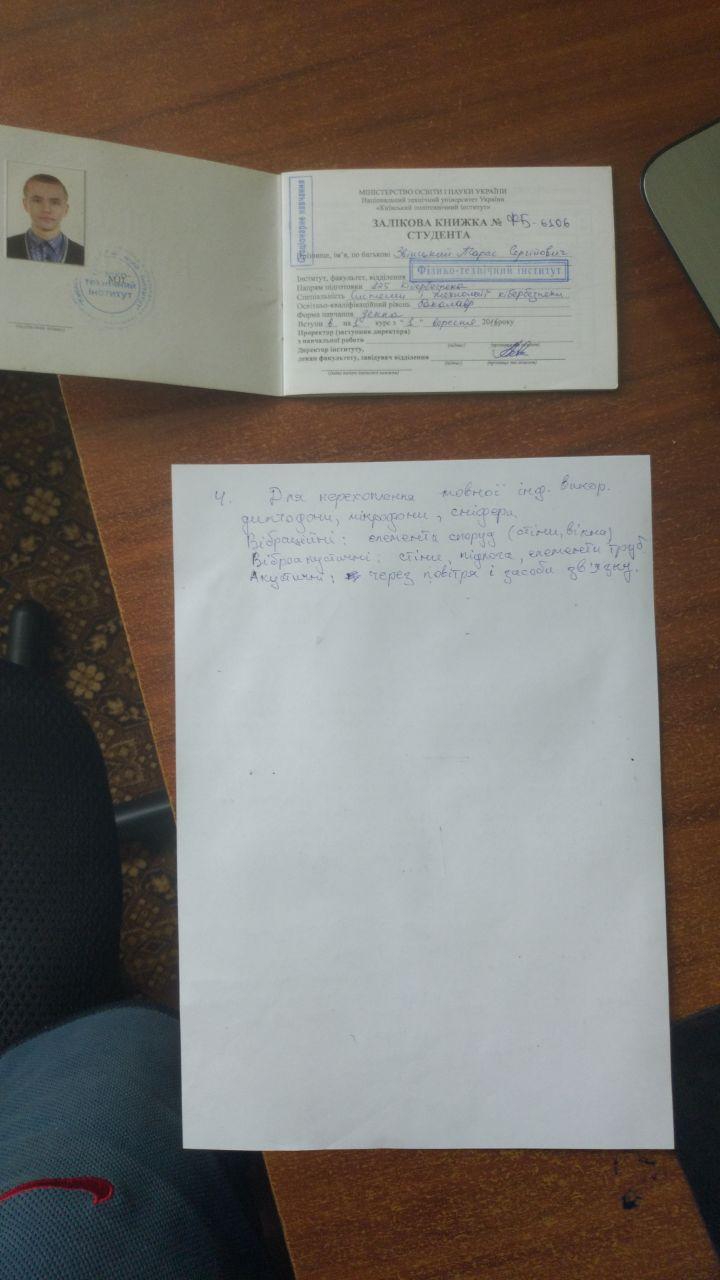 МІНІСТЕРСТВО ОСВІТИ І НАУКИ УКРАЇНИ
Національний технічний університет України
«Київський політехнічний інститут»
ЗАЛІКОВА КНИЖКА № ФБ-6106
СТУДЕНТА
Прізвище, ім'я, по батькові Тарас Сергійович
Інститут, факультет, відділення Фізико-технічний інститут
Напрям підготовки 125 Кібербезпека
Спеціальність Системи і технології кібербезпеки
Освітньо-кваліфікаційний рівень бакалавр
Форма навчання денна
Вступив на 1 курс з "1" вересня 2016 року
Проректор (заступник директора)
з навчальної роботи
Директор інституту,
декан факультету, завідувач відділення
Стаціонарне навчання
технічний
інститут
4. Для перехоплення мовної інф. викор.
диктофони, мікрофони, сніфера.
Вібраційні: елементи споруд (стіни, вікна)
Віброакустичні: стіни, підлога, елементи труб
Акустичні: через повітря і засоби зв'язку.